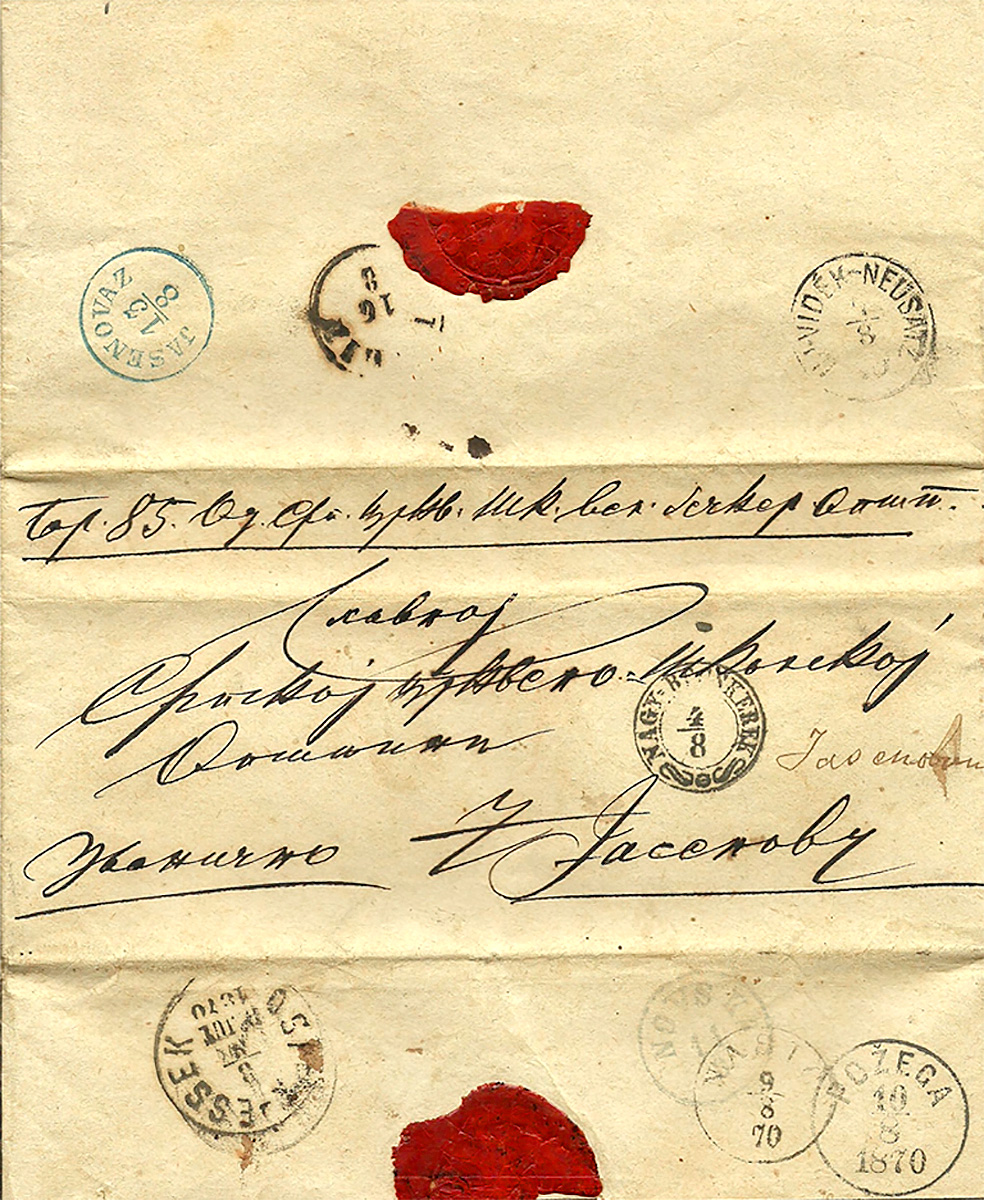 JASENOVAZ 13/8
16 8
UJ-VIDÉK-NEUSATZ /8
Бр. 85. Од Ср. цркв. шк. вел. бечкер. општ.
Славној
Српској црквено-школској
Општини
NAGY-BECSKEREK 4/8
Јасеновац
Званично
У Јасеновцу
ESSEK OS 1870
NAŠI 9/8 70
POŽEGA 10/8 1870